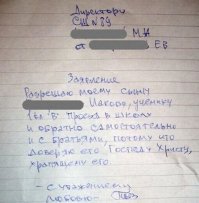 Директору
СШ №89
М.Н
от Е.В
Заявление
Разрешаю моему сыну
Иакову, ученику
1го "В" класса в школу
и обратно самостоятельно
и с братьями, потому что
доверяю его Господу Христу,
хранящему его.
- с уважением и
любовью -